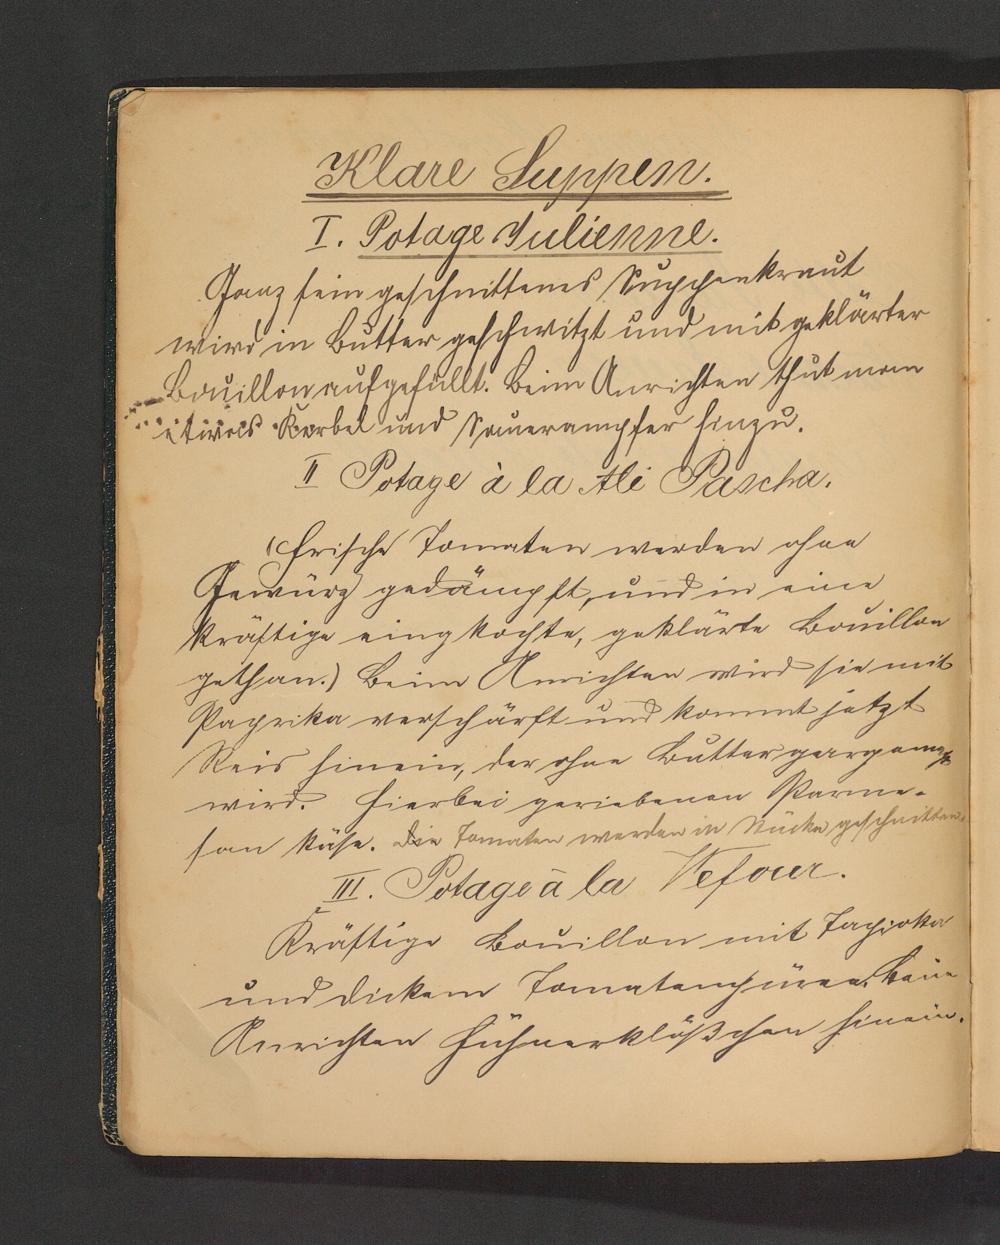 Klare Suppen.
I. Potage Julienne.
Ganz fein geschnittenes Suppenkraut
wird in Butter geschwitzt und mit geklärter
Bouillon aufgefüllt. Beim Anrichten thut man
etwas Kerbel und Sauerampfer hinzu.
II Potage à la Ali Pascha.
(frische Tomaten werden ohne
Gewürz gedämpft, und in eine
kräftige eingkochte, geklärte Bouillon
gethan.) Beim Anrichten wird sie mit
Paprika verschärft und kommt jetzt
Reis hinein, der ohne Butter
wird. Hierbei geriebenen Parme-
san Käse. Die Tomaten werden in Stücke geschnitten.
III. Potage à la Vefour.
Kräftige Bouillon mit Tapioka
und dickem Tomatenpüree. Beim
Anrichten Hühnerklößchen hinein.